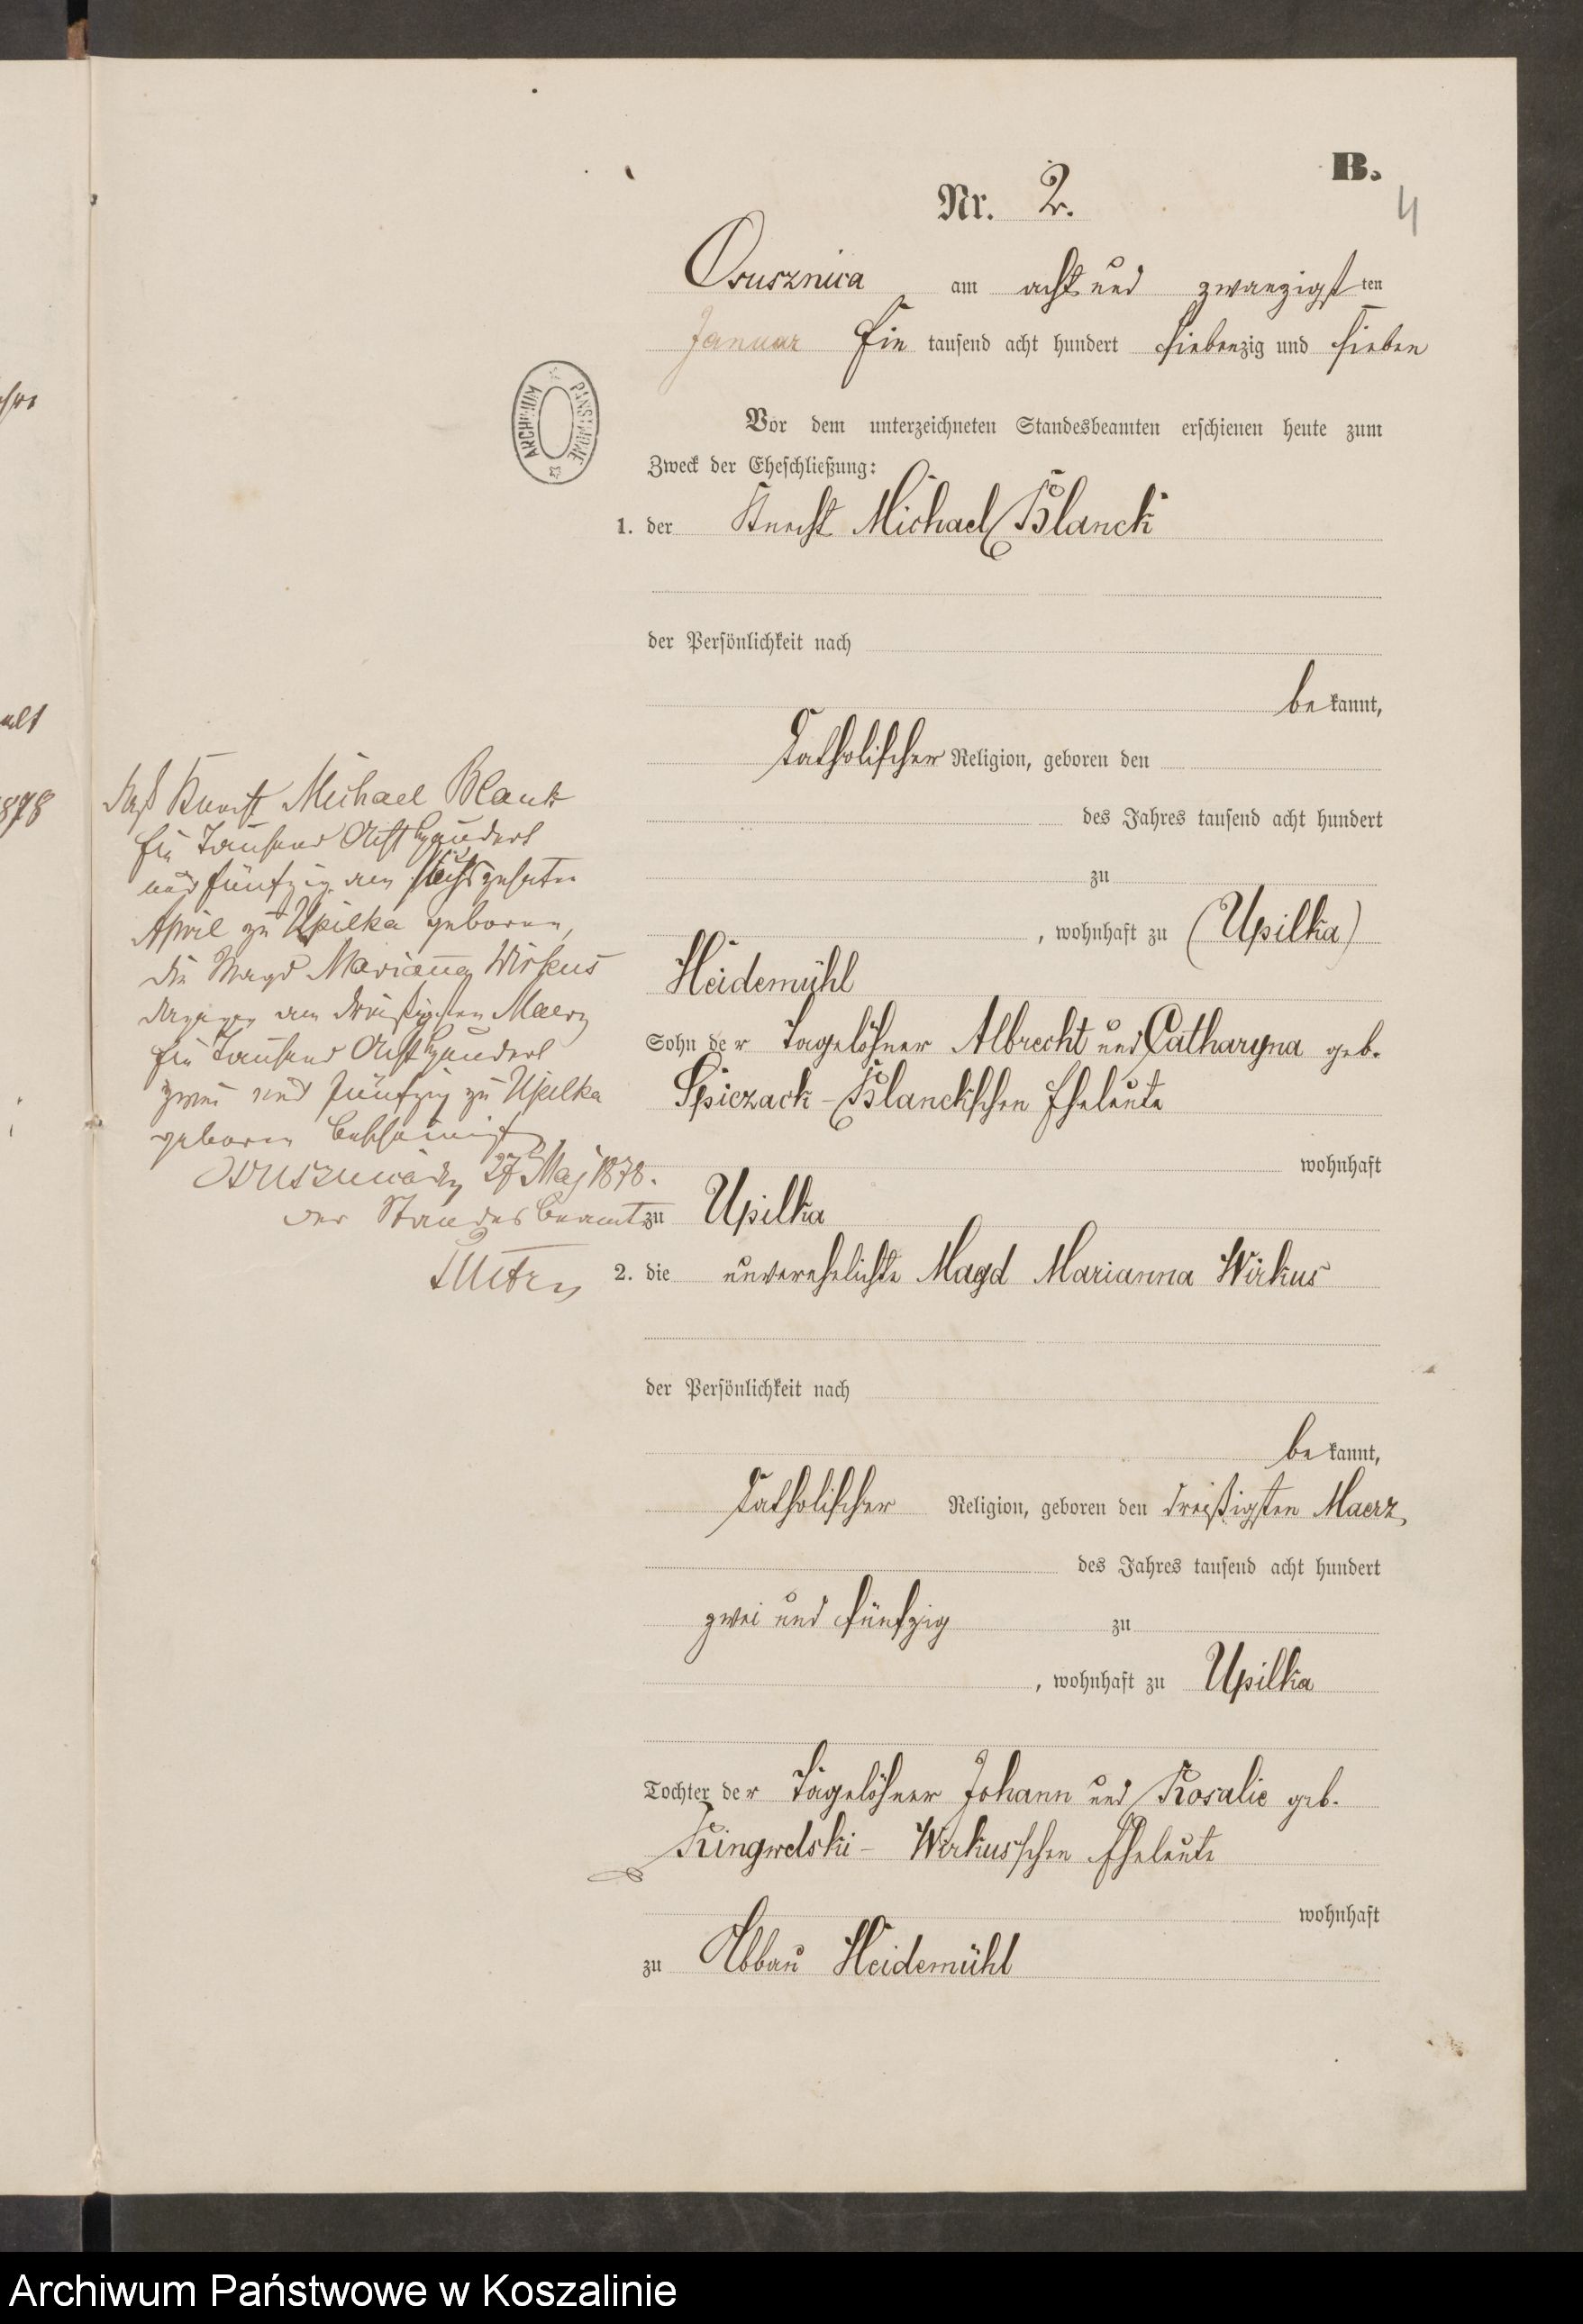 B.
Nr. 2.
4
Osusznica am acht und zwanzigsten
Januar Ein tausend acht hundert siebenzig und sieben
Vor dem unterzeichneten Standesbeamten erschienen heute zum
Zweck der Eheschließung:
1. der Knecht Michael Blanck
der Persönlichkeit nach
be kannt,
Catholischer Religion, geboren den
des Jahres tausend acht hundert
zu
, wohnhaft zu (Upilka)
Heidemühl
Sohn der Tagelöhner Albrecht und Catharyna geb.
Spiczack - Blanck'schen Eheleute
wohnhaft
zu Upilka
2. die unverehelichte Magd Marianna Wirkus
der Persönlichkeit nach
be kannt,
Catholischer Religion, geboren den dreißigsten Maerz
des Jahres tausend acht hundert
zwei und fünfzig zu
, wohnhaft zu Upilka
Tochter der Tagelöhner Johann und Rosalie geb.
Kingwelski - Wirkus'schen Eheleute
wohnhaft
zu Abbau Heidemühl
Daß Knecht Michael Blank
Ein Tausend Acht Hundert
und fünfzig den
April zu Upilka geboren,
die Magd Marianna Wirkus
dagegen am dreißigsten Maerz
Ein Tausend Acht Hundert
zwei und fünfzig zu Upilka
geboren bescheinigt
Osusznica den 27 Maj 1878.
der Standesbeamte
ARCHIWUM PAŃSTWOWE
alt
1878
Archiwum Państwowe w Koszalinie